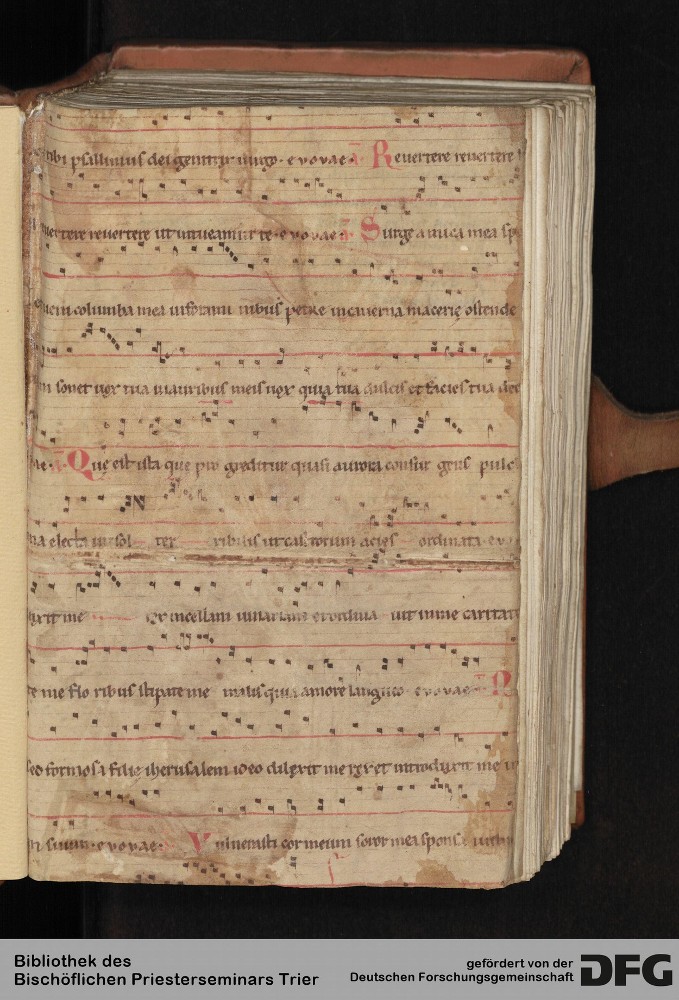 tibi psallimus dei genitrix uirgo · e v o v a e A Reuertere reuertere
uertere reuertere ut intueamur te · e v o v a e A Surge amica mea sp
columba mea in foraminibus petre in cauerna macerie ostende
sonet uox tua in auribus meis uox quia tua dulcis et facies tua dec
ae · A Que est ista que pro greditur quasi aurora consur gens pulch
na electa ut sol ter ribilis ut castrorum acies ordinata · e v o
xit me rex in cellam uinariam et ordina uit in me caritate
te me flo ribus stipate me malis quia amore langueo · e v o v a e
formosa filie iherusalem ideo dilexit me rex et introduxit me in
suum · e v o v a e · Vulnerasti cor meum soror mea sponsa
Bibliothek des
Bischöflichen Priesterseminars Trier
gefördert von der
Deutschen Forschungsgemeinschaft
DFG